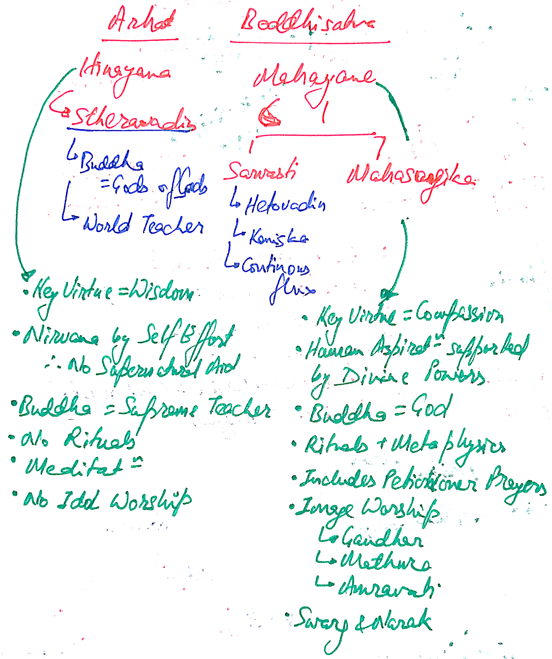 Arhat
Boddhisatva
Hinayana
Stheravadin
Buddha
= Gods of Gods
World Teacher
Mahayana
Sarvasti
Hetovadin
Kaniska
Continous
flux
Mahasangika
• Key Virtue = Wisdom
• Nirvana by Self Effort
∴ No Supernatural Aid
• Buddha = Supreme Teacher
• No Rituals
• Meditatn
• No Idol Worship
• Key Virtue = Compassion
• Human Aspiratn supported
by Divine Powers
• Buddha = God
• Rituals + Metaphysics
• Includes Petictioner Prayers
• Image Worship
Gandhar
Mathura
Amravati
• Swarg & Narak